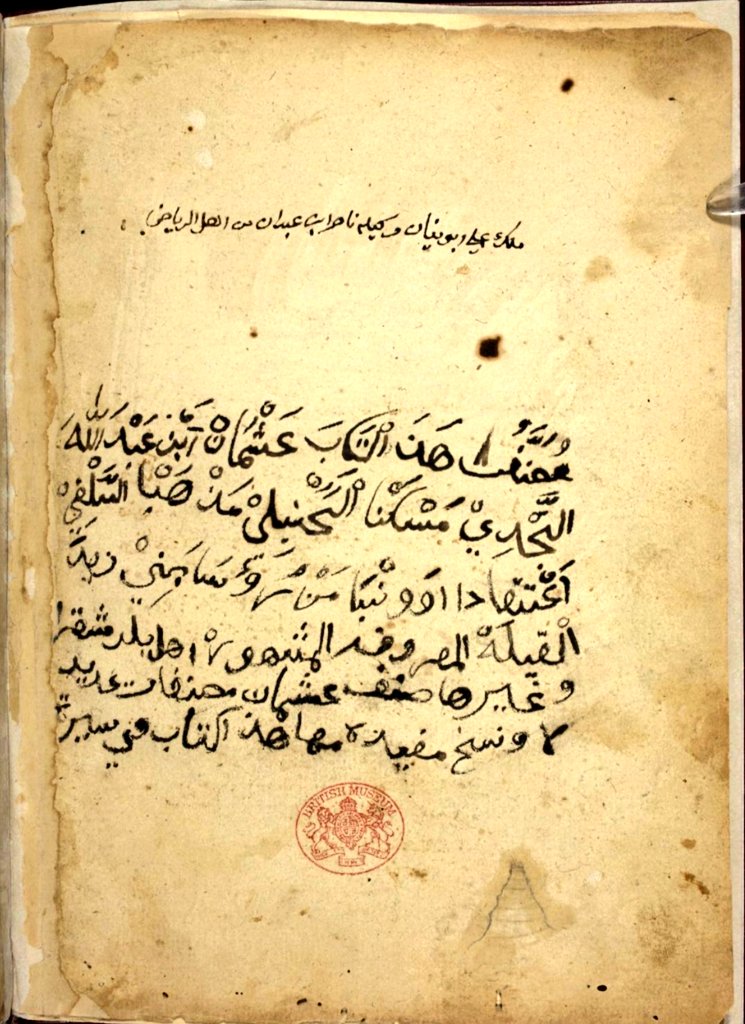 ملك علي ابو بنيان وكيله ناصر ابن عبدان من اهل الرياض
مُصَنِّف هَذَ الْكتَابَ عَثْمَانْ آبْن عَبْدَ اللّه
النَّجْدِيْ مَسْكَنْا الْحَنبليْ مَذْ هَبْا السَّلْفِيْ
اعْتقادا من بني زيد
الْقبيلَهْ المعروفه المشهوره اهل بلد شقرا
وغيرها صنف عثمان مصنفات عديد
ه ونسخ مفيده منها هذ الكتاب في سيرة
BRITISH MUSEUM